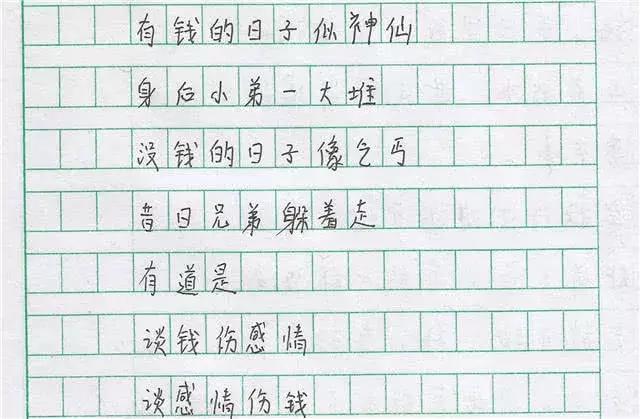 有钱的日子似神仙
身后小弟一大堆
没钱的日子像乞丐
昔日兄弟躲着走
有道是
谈钱伤感情
谈感情伤钱